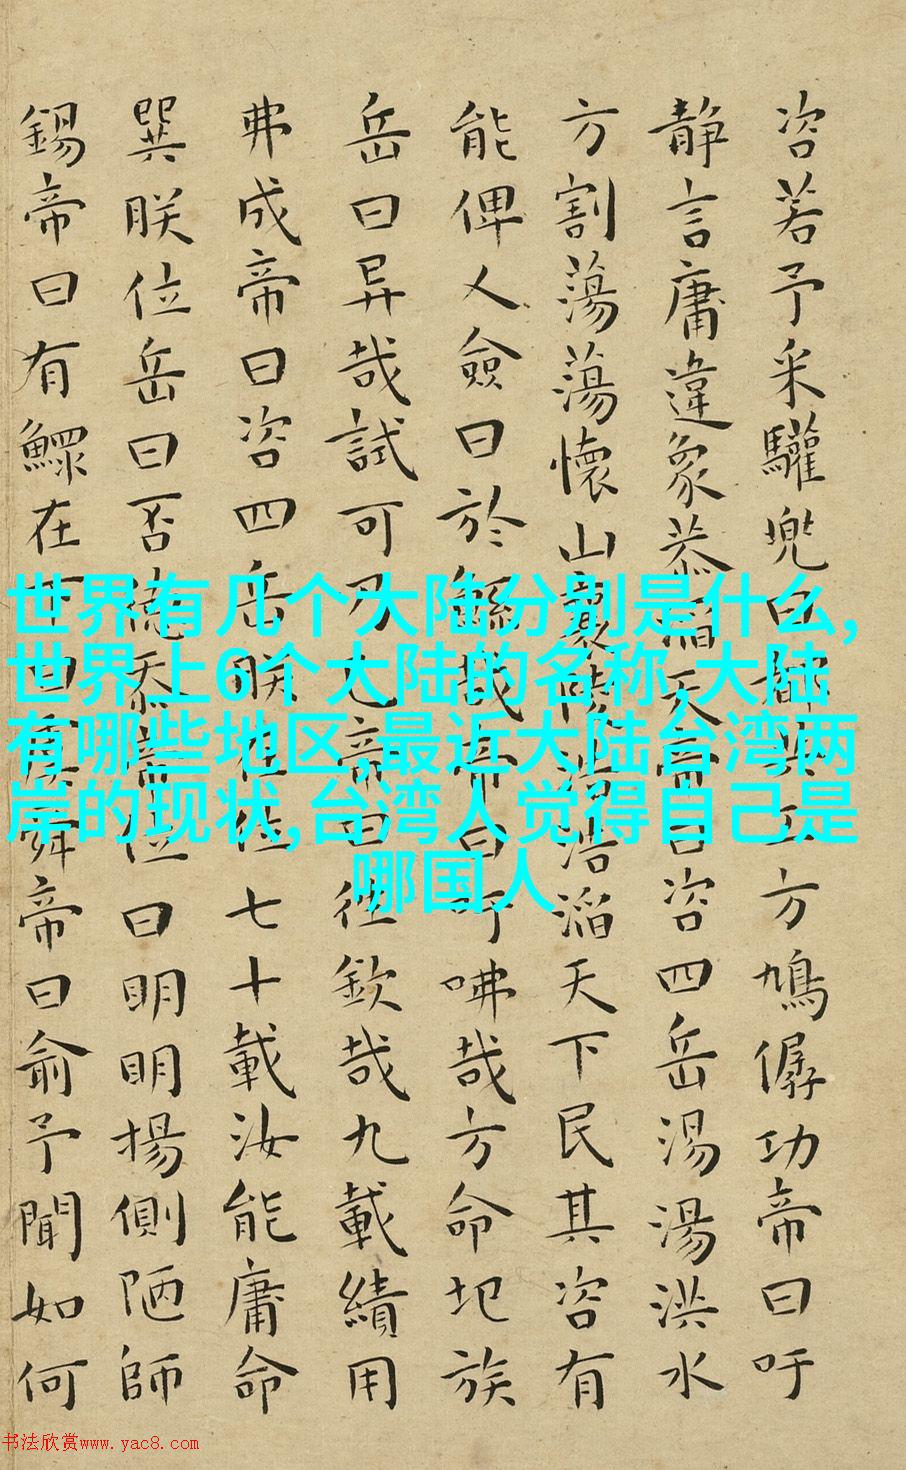 咨若予采驩兜曰都共工方鳩僝功帝曰吁
静言庸違象恭滔天帝曰咨四岳湯湯洪水
方割蕩蕩懷山襄陵浩浩滔天下民其咨有
能俾乂僉曰於鯀哉帝曰吁咈哉方命圮族
岳曰异哉試可乃已帝曰往欽哉九載績用
弗成帝曰咨四岳朕在位七十載汝能庸命
巽朕位岳曰否德忝帝位曰明明揚側陋師
錫帝曰有鰥在下曰虞舜帝曰俞予聞如何
世界有几个大陆分别是什么,
世界上6个大陆的名称,大陆
有哪些地区,最近大陆台湾两
岸的现状,台湾人觉得自己是
哪国人
书法欣赏www.yac8.com